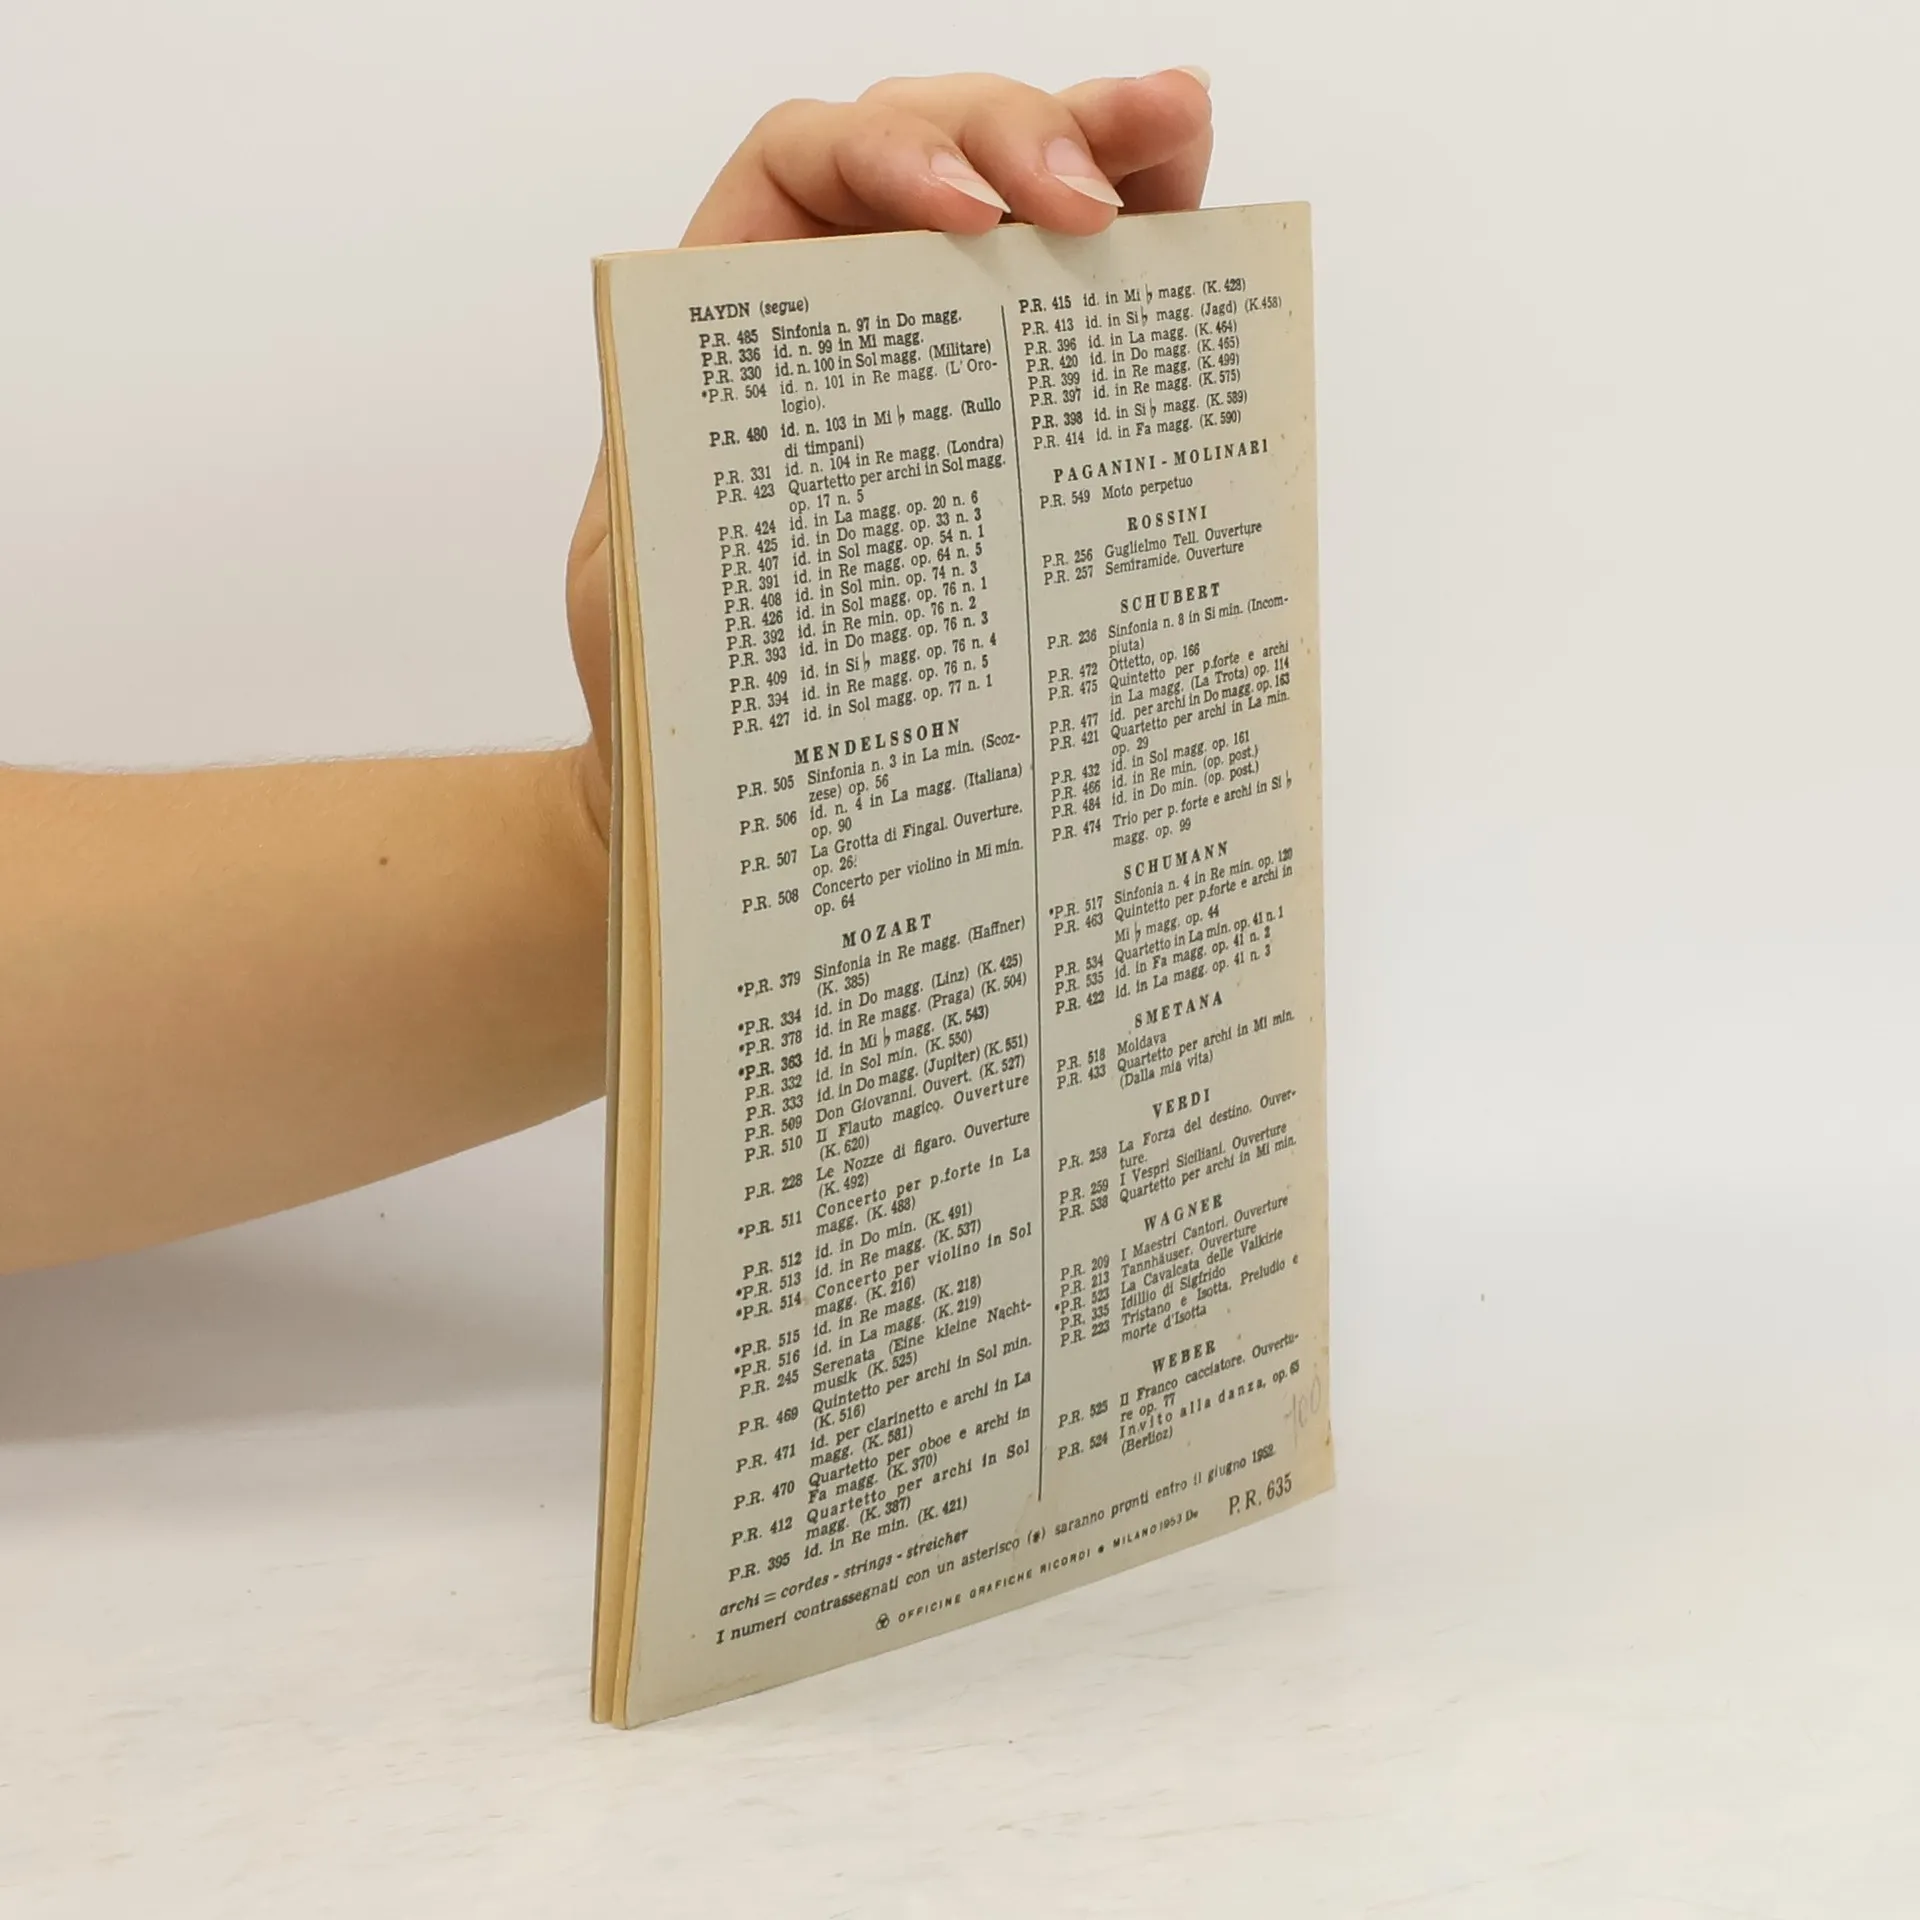 HAYDN (segue)
P.R. 485 Sinfonia n. 97 in Do magg.
P.R. 336 id. n. 99 in Mi magg.
P.R. 330 id. n. 100 in Sol magg. (Militare)
*P.R. 504 id. n. 101 in Re magg. (L'Oro-
logio).
P.R. 480 id. n. 103 in Mi♭ magg. (Rullo
di timpani)
P.R. 331 id. n. 104 in Re magg. (Londra)
P.R. 423 Quartetto per archi in Sol magg.
op. 17 n. 5
P.R. 424 id. in La magg. op. 20 n. 6
P.R. 425 id. in Do magg. op. 33 n. 3
P.R. 407 id. in Sol magg. op. 54 n. 1
P.R. 391 id. in Re magg. op. 64 n. 5
P.R. 408 id. in Sol min. op. 74 n. 3
P.R. 426 id. in Sol magg. op. 76 n. 1
P.R. 392 id. in Re min. op. 76 n. 2
P.R. 393 id. in Do magg. op. 76 n. 3
P.R. 409 id. in Si♭ magg. op. 76 n. 4
P.R. 394 id. in Re magg. op. 76 n. 5
P.R. 427 id. in Sol magg. op. 77 n. 1
MENDELSSOHN
P.R. 505 Sinfonia n. 3 in La min. (Scoz-
zese) op. 56
P.R. 506 id. n. 4 in La magg. (Italiana)
op. 90
P.R. 507 La Grotta di Fingal. Ouverture.
op. 26.
P.R. 508 Concerto per violino in Mi min.
op. 64
MOZART
*P.R. 379 Sinfonia in Re magg. (Haffner)
(K. 385)
*P.R. 334 id. in Do magg. (Linz) (K. 425)
*P.R. 378 id. in Re magg. (Praga) (K. 504)
*P.R. 363 id. in Mi♭ magg. (K. 543)
P.R. 332 id. in Sol min. (K. 550)
P.R. 333 id. in Do magg. (Jupiter) (K. 551)
P.R. 509 Don Giovanni. Ouvert. (K. 527)
P.R. 510 Il Flauto magico. Ouverture
(K. 620)
P.R. 228 Le Nozze di figaro. Ouverture
(K. 492)
*P.R. 511 Concerto per p.forte in La
magg. (K. 488)
P.R. 512 id. in Do min. (K. 491)
*P.R. 513 id. in Re magg. (K. 537)
*P.R. 514 Concerto per violino in Sol
magg. (K. 216)
*P.R. 515 id. in Re magg. (K. 218)
*P.R. 516 id. in La magg. (K. 219)
P.R. 245 Serenata (Eine kleine Nacht-
musik (K. 525)
P.R. 469 Quintetto per archi in Sol min.
(K. 516)
P.R. 471 id. per clarinetto e archi in La
magg. (K. 581)
P.R. 470 Quartetto per oboe e archi in
Fa magg. (K. 370)
P.R. 412 Quartetto per archi in Sol
magg. (K. 387)
P.R. 395 id. in Re min. (K. 421)
P.R. 415 id. in Mi♭ magg. (K. 428)
P.R. 413 id. in Si♭ magg. (Jagd) (K.458)
P.R. 396 id. in La magg. (K. 464)
P.R. 420 id. in Do magg. (K. 465)
P.R. 399 id. in Re magg. (K. 499)
P.R. 397 id. in Re magg. (K. 575)
P.R. 398 id. in Si♭ magg. (K. 589)
P.R. 414 id. in Fa magg. (K. 590)
PAGANINI - MOLINARI
P.R. 549 Moto perpetuo
ROSSINI
P.R. 256 Guglielmo Tell. Ouverture
P.R. 257 Semiramide. Ouverture
SCHUBERT
P.R. 236 Sinfonia n. 8 in Si min. (Incom-
piuta)
P.R. 472 Ottetto, op. 166
P.R. 475 Quintetto per p.forte e archi
in La magg. (La Trota) op. 114
P.R. 477 id. per archi in Do magg. op. 163
P.R. 421 Quartetto per archi in La min.
op. 29
P.R. 432 id. in Sol magg. op. 161
P.R. 466 id. in Re min. (op. post.)
P.R. 484 id. in Do min. (op. post.)
P.R. 474 Trio per p. forte e archi in Si♭
magg. op. 99
SCHUMANN
*P.R. 517 Sinfonia n. 4 in Re min. op. 120
P.R. 463 Quintetto per p.forte e archi in
Mi♭ magg. op. 44
P.R. 534 Quartetto in La min. op. 41 n. 1
P.R. 535 id. in Fa magg. op. 41 n. 2
P.R. 422 id. in La magg. op. 41 n. 3
SMETANA
P.R. 518 Moldava
P.R. 433 Quartetto per archi in Mi min.
(Dalla mia vita)
VERDI
P.R. 258 La Forza del destino. Ouver-
ture.
P.R. 259 I Vespri Siciliani. Ouverture
P.R. 538 Quartetto per archi in Mi min.
WAGNER
P.R. 209 I Maestri Cantori. Ouverture
P.R. 213 Tannhäuser. Ouverture
*P.R. 523 La Cavalcata delle Valkirie
P.R. 335 Idillio di Sigfrido
P.R. 223 Tristano e Isotta. Preludio e
morte d'Isotta
WEBER
P.R. 525 Il Franco cacciatore. Ouvertu-
re op. 77
P.R. 524 Invito alla danza, op. 65
(Berlioz)
700
archi = cordes - strings - streicher
I numeri contrassegnati con un asterisco (*) saranno pronti entro il giugno 1952.
OFFICINE GRAFICHE RICORDI * MILANO 1953 De
P. R. 635